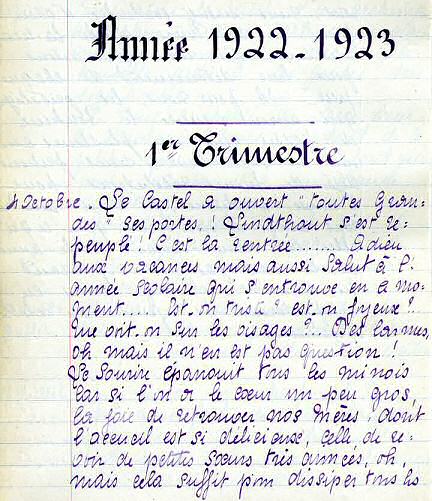 Année 1922-1923
1er Trimestre
4 Octobre. Le Castel a ouvert "toutes gran-
des" ses portes ! Lindthout s'est re-
peuplé ! C'est la rentrée....... Adieu
aux vacances mais aussi salut à l'
année scolaire qui s'entrouve en ce mo-
ment..... Est-on triste ? est-on joyeux ?
Que voit-on sur les visages ?.. Des larmes,
oh mais il n'en est pas question !
Le sourire épanouit tous les minois
car si l'on a le cœur un peu gros,
la joie de retrouver nos Mères dont
l'accueil est si délicieux, celle de re-
voir de petites sœurs très aimées, oh,
mais cela suffit pour dissiper tous les